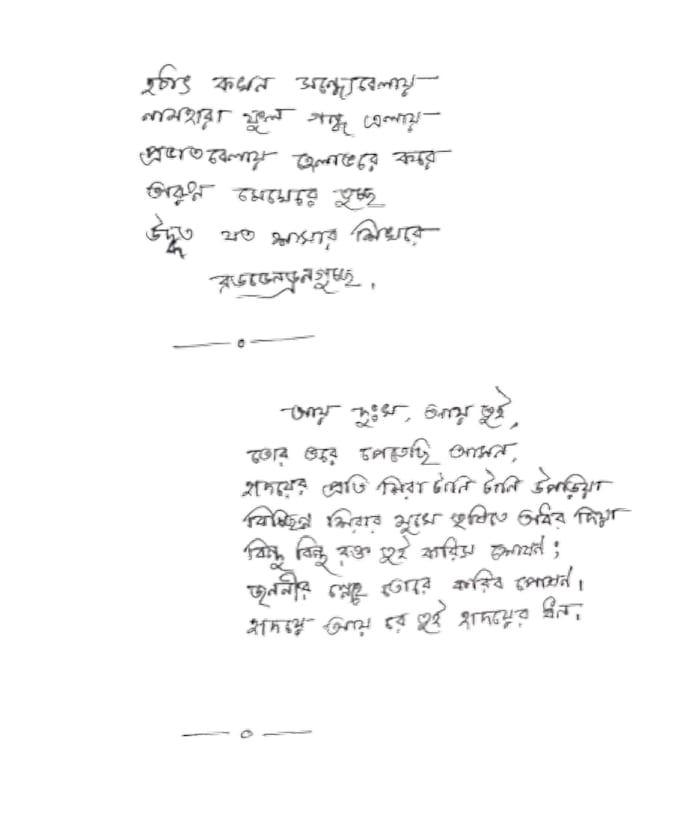 হঠাৎ কখন সন্ধ্যেবেলায়
নামহারা ফুল গন্ধ এলায়
প্রভাতবেলায় হেলাভরে করে
অরুণ মেঘেরে তুচ্ছ
উদ্ধত যত শাখার শিখরে
রডডেনড্রনগুচ্ছ।
আয় দুঃখ, আয় তুই,
তোর তরে পেতেছি আসন,
হৃদয়ের প্রতি শিরা টানি টানি উপাড়িয়া
বিচ্ছিন্ন শিরার মুখে তৃষিত অধর দিয়া
বিন্দু বিন্দু রক্ত তুই করিস শোষণ;
জননীর স্নেহে তোরে করিব পোষণ।
হৃদয়ে আয় রে তুই হৃদয়ের ধন।